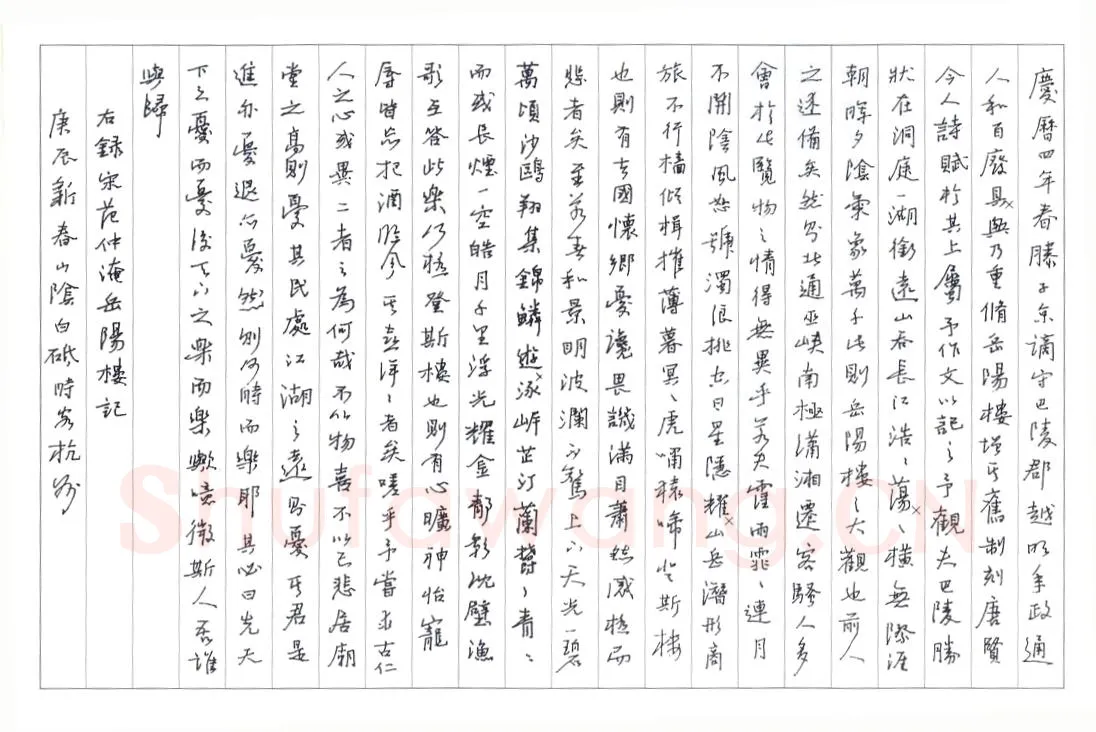 慶曆四年春滕子京謫守巴陵郡越明年政通
人和百廢具興乃重脩岳陽樓增其舊制刻唐賢
今人詩賦於其上屬予作文以記之予觀夫巴陵勝
狀在洞庭一湖銜遠山吞長江浩、蕩、橫無際涯
朝暉夕陰氣象萬千此則岳陽樓之大觀也前人
之述備矣然則北通巫峽南極瀟湘遷客騷人多
會於此覽物之情得無異乎若夫霪雨霏、連月
不開陰風怒號濁浪排空日星隱耀山岳潛形商
旅不行檣傾楫摧薄暮冥、虎嘯猿啼登斯樓
也則有去國懷鄉憂讒畏譏滿目蕭然感極而
悲者矣至若春和景明波瀾不驚上下天光一碧
萬頃沙鷗翔集錦鱗遊泳岸芷汀蘭鬱、青、
而或長煙一空皓月千里浮光耀金靜影沈璧漁
歌互答此樂何極登斯樓也則有心曠神怡寵
辱皆忘把酒臨風其喜洋、者矣嗟乎予嘗求古仁
人之心或異二者之為何哉不以物喜不以己悲居廟
堂之高則憂其民處江湖之遠則憂其君是
進亦憂退亦憂然則何時而樂耶其必曰先天
下之憂而憂後天下之樂而樂歟噫微斯人吾誰
與歸
右錄宋范仲淹岳陽樓記
庚辰新春山陰白砥時客杭州
Shufawang.CN